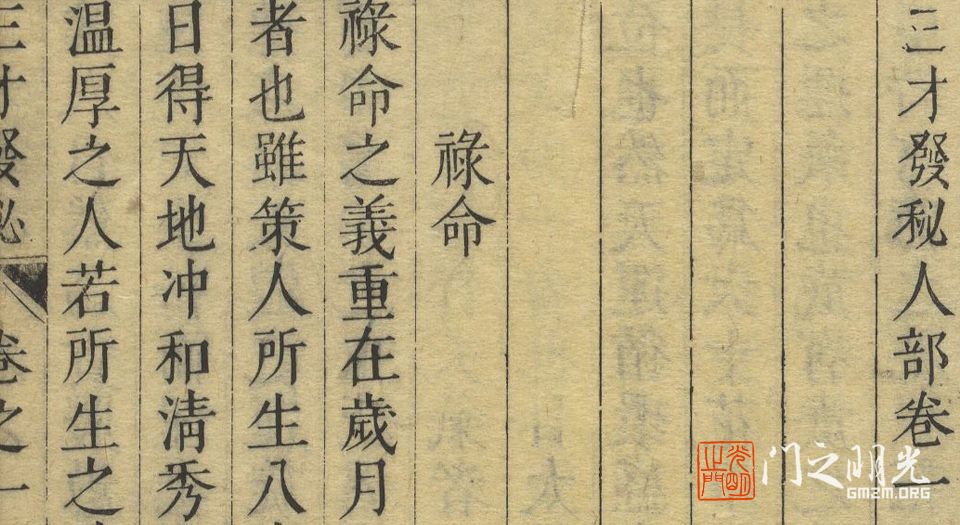 三才發秘人部卷一
祿命
祿命之義重在歲月
者也雖策人所生八
日得天地冲和清秀
温厚之人若所生之
三才發秘 卷之一
光明之門
门之明光
GMZM.ORG